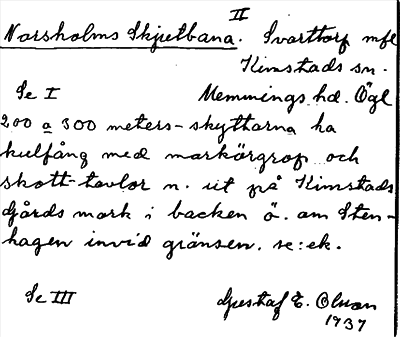 II
Norsholms Skjutbana. Svarttorp mfl
Kimstads sn.
Se I Memmings hd. Ögl
200 a 300 meters-skyttarna ha
kulfång med markörgrop och
skott-tavlor n. ut på Kimstads
Gårds mark i backen ö. om Sten-
hagen invid gränsen. se: ek.
Se III Gustaf E. Olson
1937